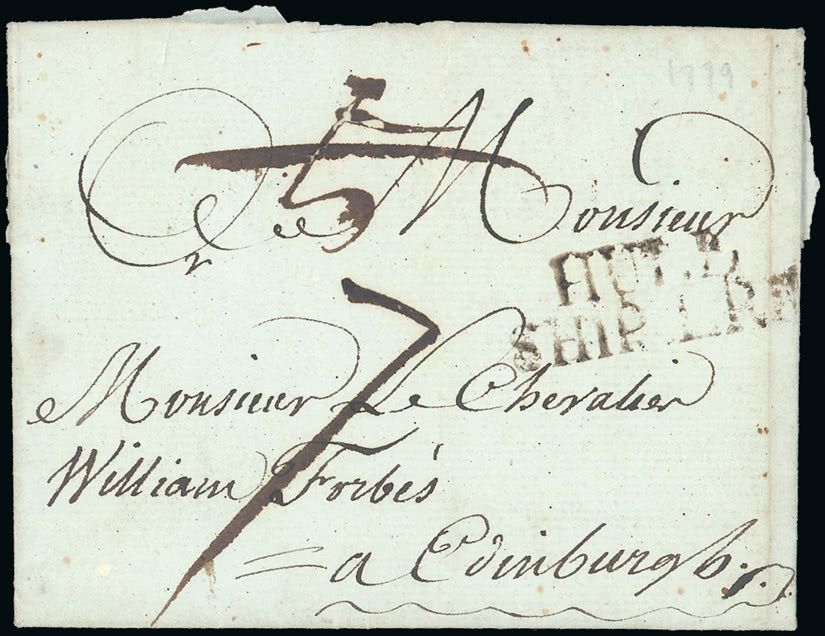 1779
5
A Monsieur
HULL
SHIP LRE
7
Monsieur Le Chevalier
William Forbés
= a Edinburgh.